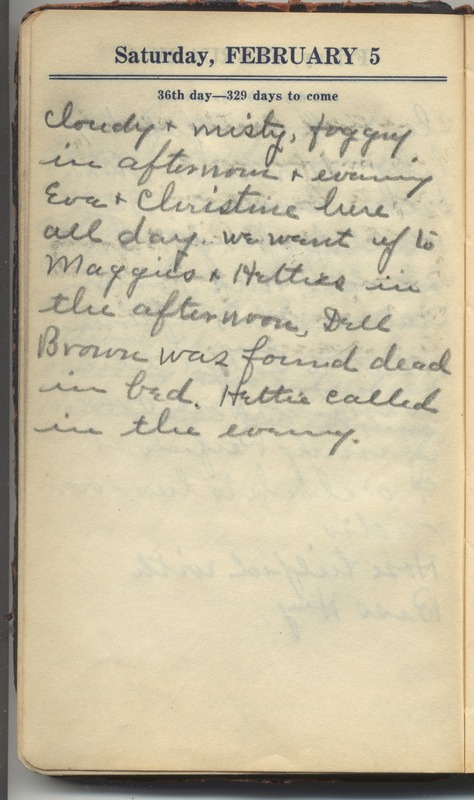 Saturday, FEBRUARY 5
36th day—329 days to come
Cloudy + misty, foggy
in afternoon + evening
Eva + Christine here
all day. we went up to
Maggies + Hetties in
the afternoon, Dell
Brown was found dead
in bed. Hettie called
in the eveny.